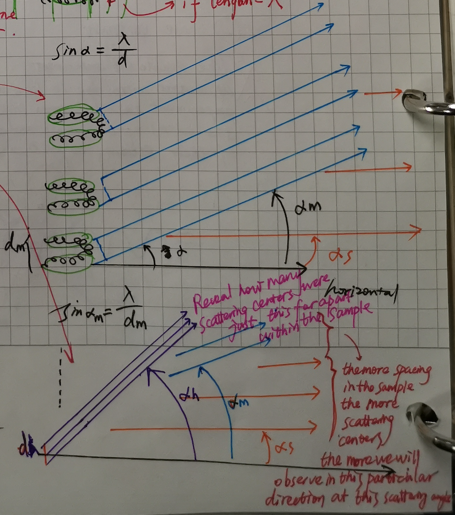 if length = λ
sin α = λ/d
αm
α
dm
αs
horizontal
sin αm = λ/dm
Reveal how many
scattering centers were
just this far apart
within the sample
αh
αm
αs
the more spacing
in the sample
the more
scattering
centers
the more we will
observe in this particular
direction at this scattering angle